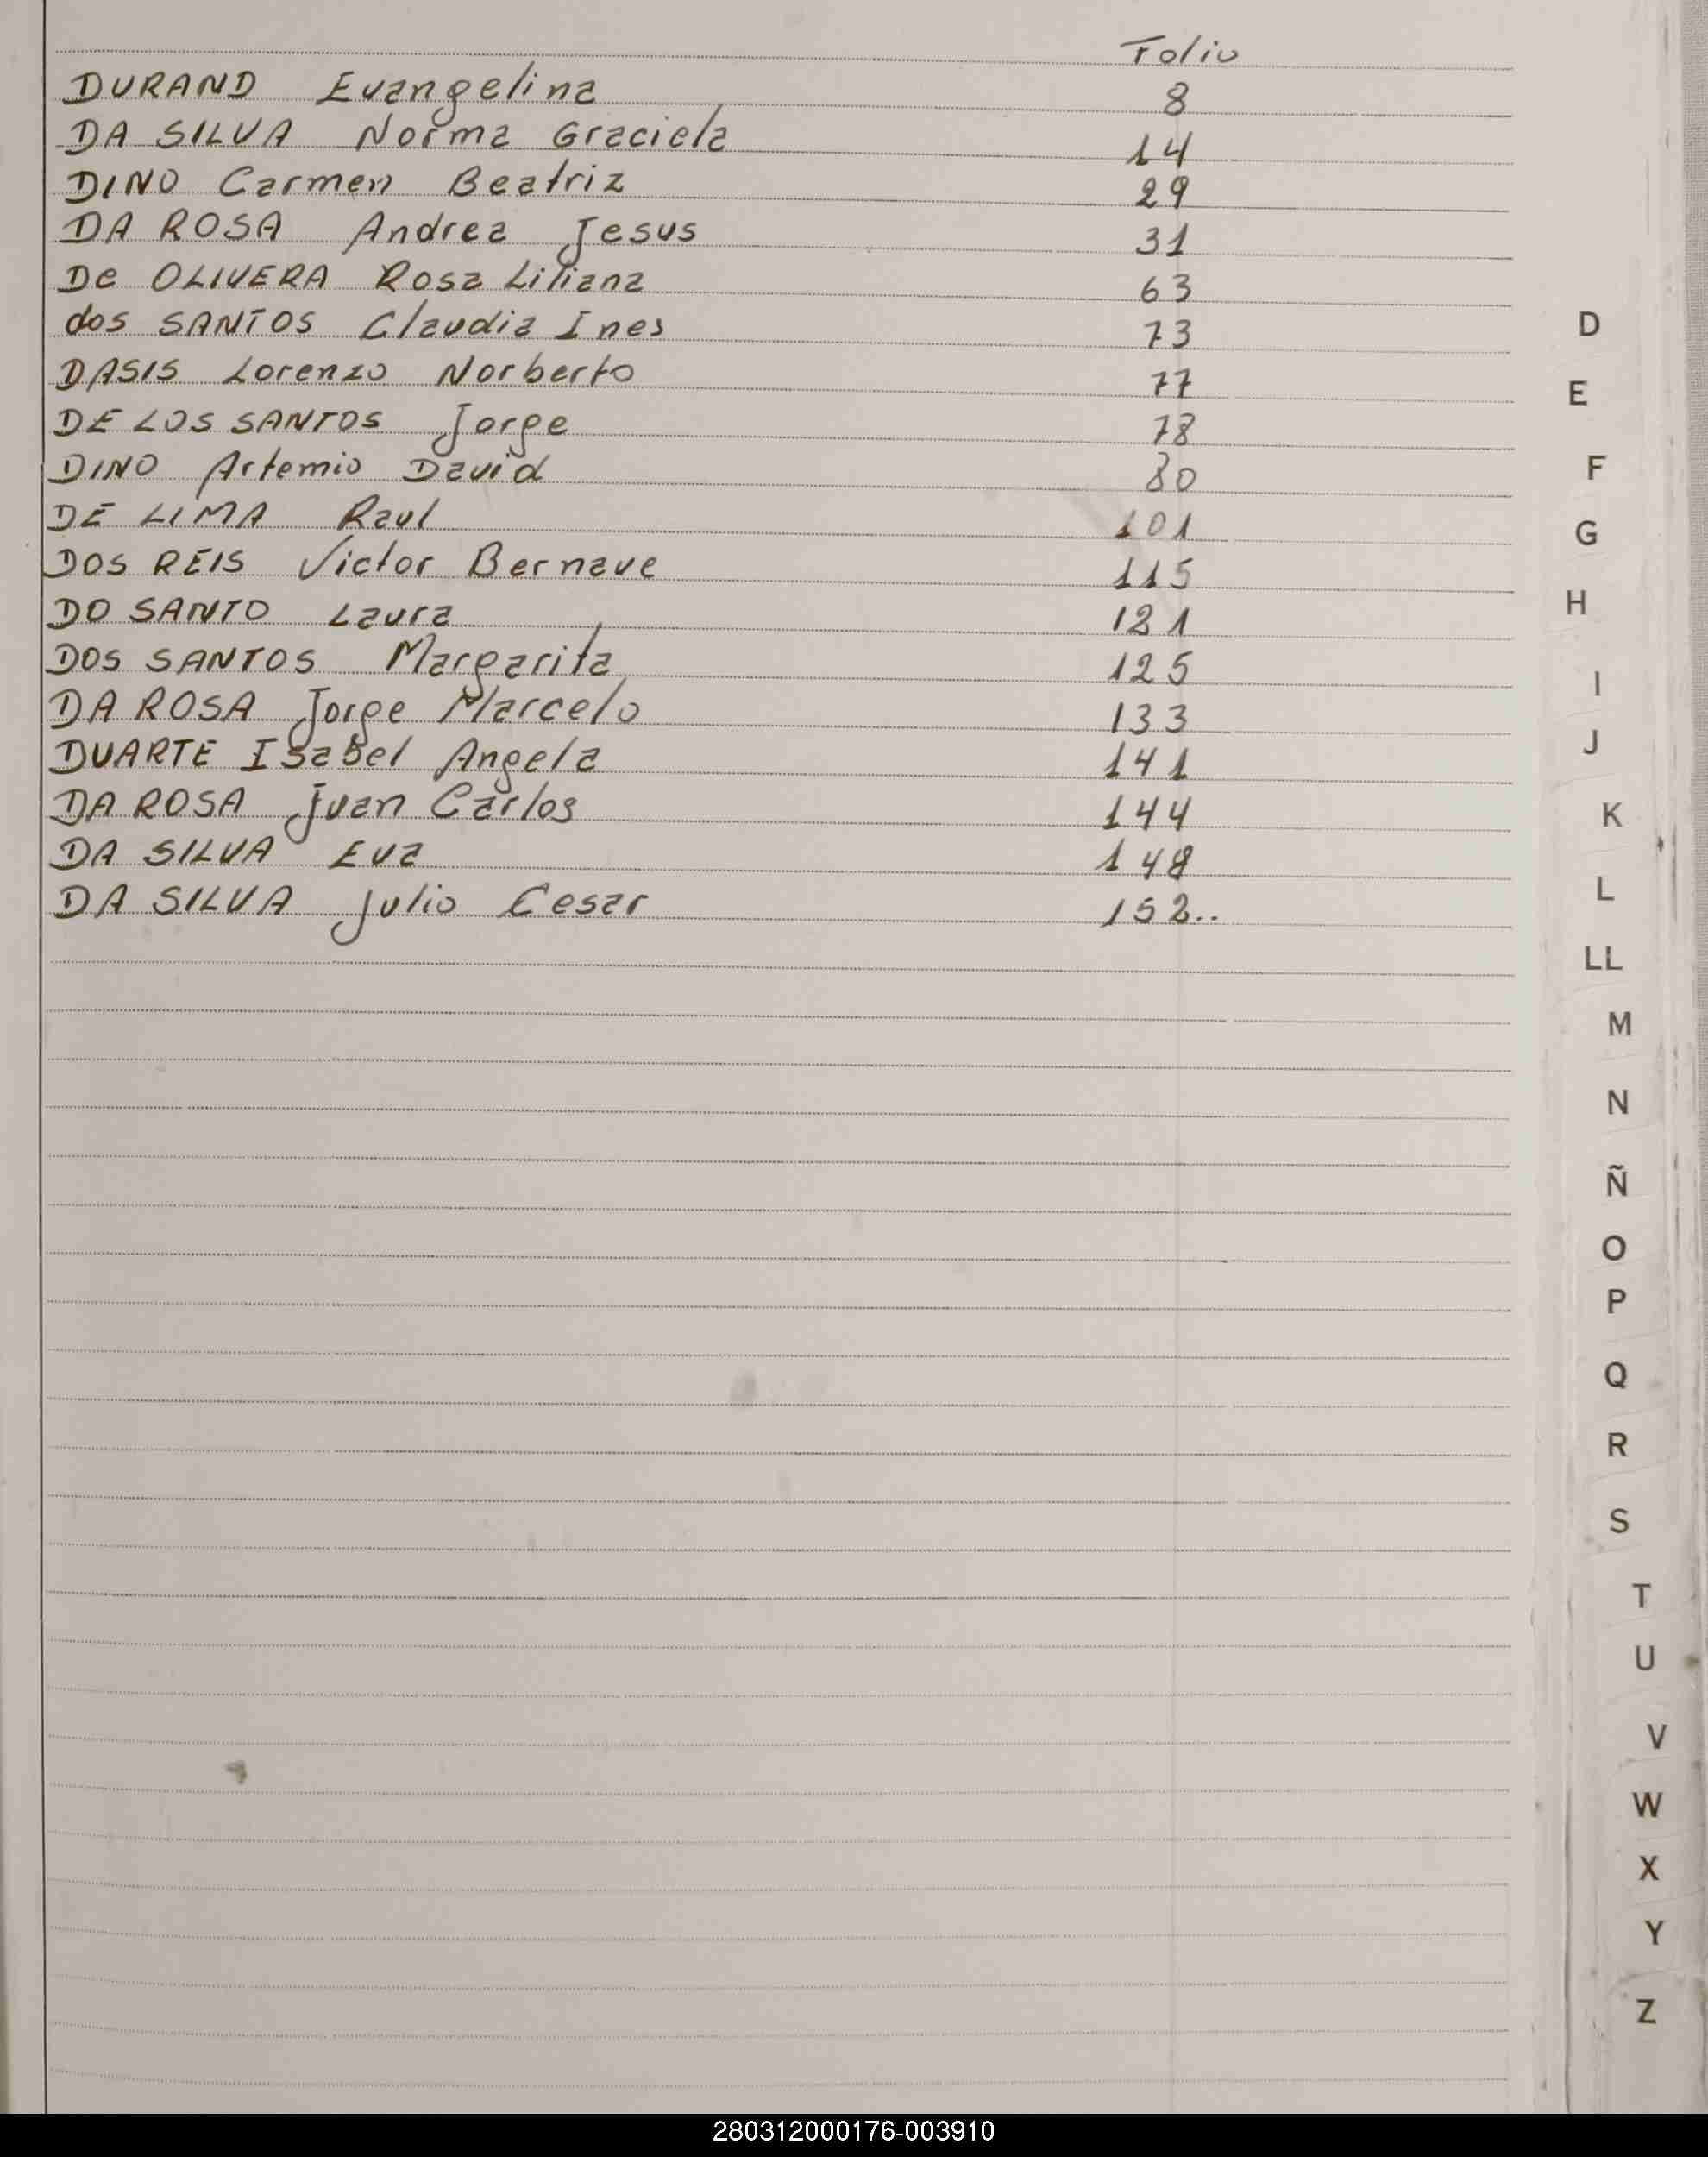 Folio
DURAND Evangelina 8
DA SILVA Norma Graciela 14
DINO Carmen Beatriz 29
DA ROSA Andrea Jesus 31
De OLIVERA Rosa Liliana 63
dos SANTOS Claudia Ines 73
DASIS Lorenzo Norberto 77
DE LOS SANTOS Jorge 78
DINO Artemio David 80
DE LIMA Raul 101
DOS REIS Victor Bernave 115
DO SANTO Laura 121
DOS SANTOS Margarita 125
DA ROSA Jorge Marcelo 133
DUARTE Isabel Angela 141
DA ROSA Juan Carlos 144
DA SILVA Eva 148
DA SILVA Julio Cesar 152..
D
E
F
G
H
I
J
K
L
LL
M
N
Ñ
O
P
Q
R
S
T
U
V
W
X
Y
Z
280312000176-003910